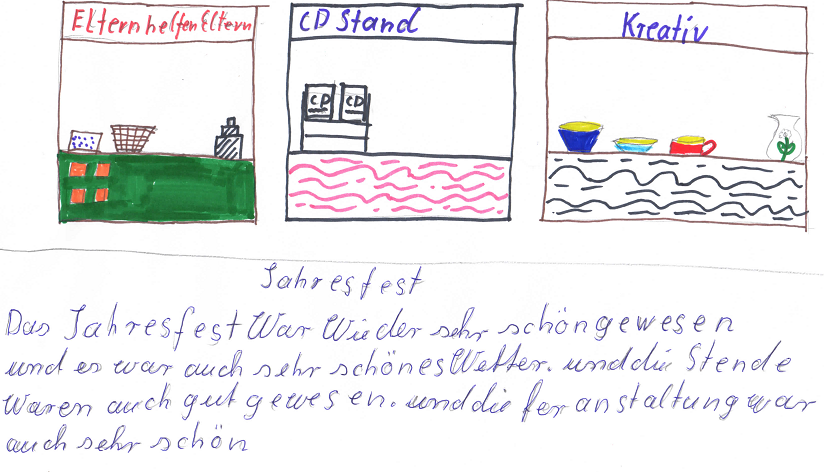 Eltern helfen Eltern
CD Stand
Kreativ
CD CD
Jahresfest
Das Jahresfest War Wieder sehr schön gewesen
und es war auch sehr schönes Wetter. und die Stende
Waren auch gut gewesen. und die feranstaltung war
auch sehr schön